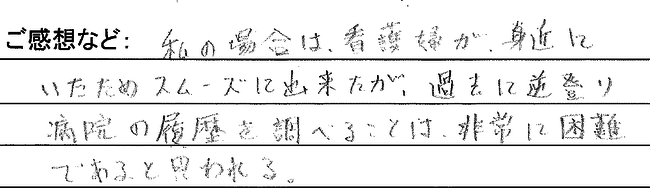 ご感想など： 私の場合は、看護婦が、身近に
いたためスムーズに出来たが、過去に逆登り
病院の履歴を調べることは、非常に困難
であると思われる。